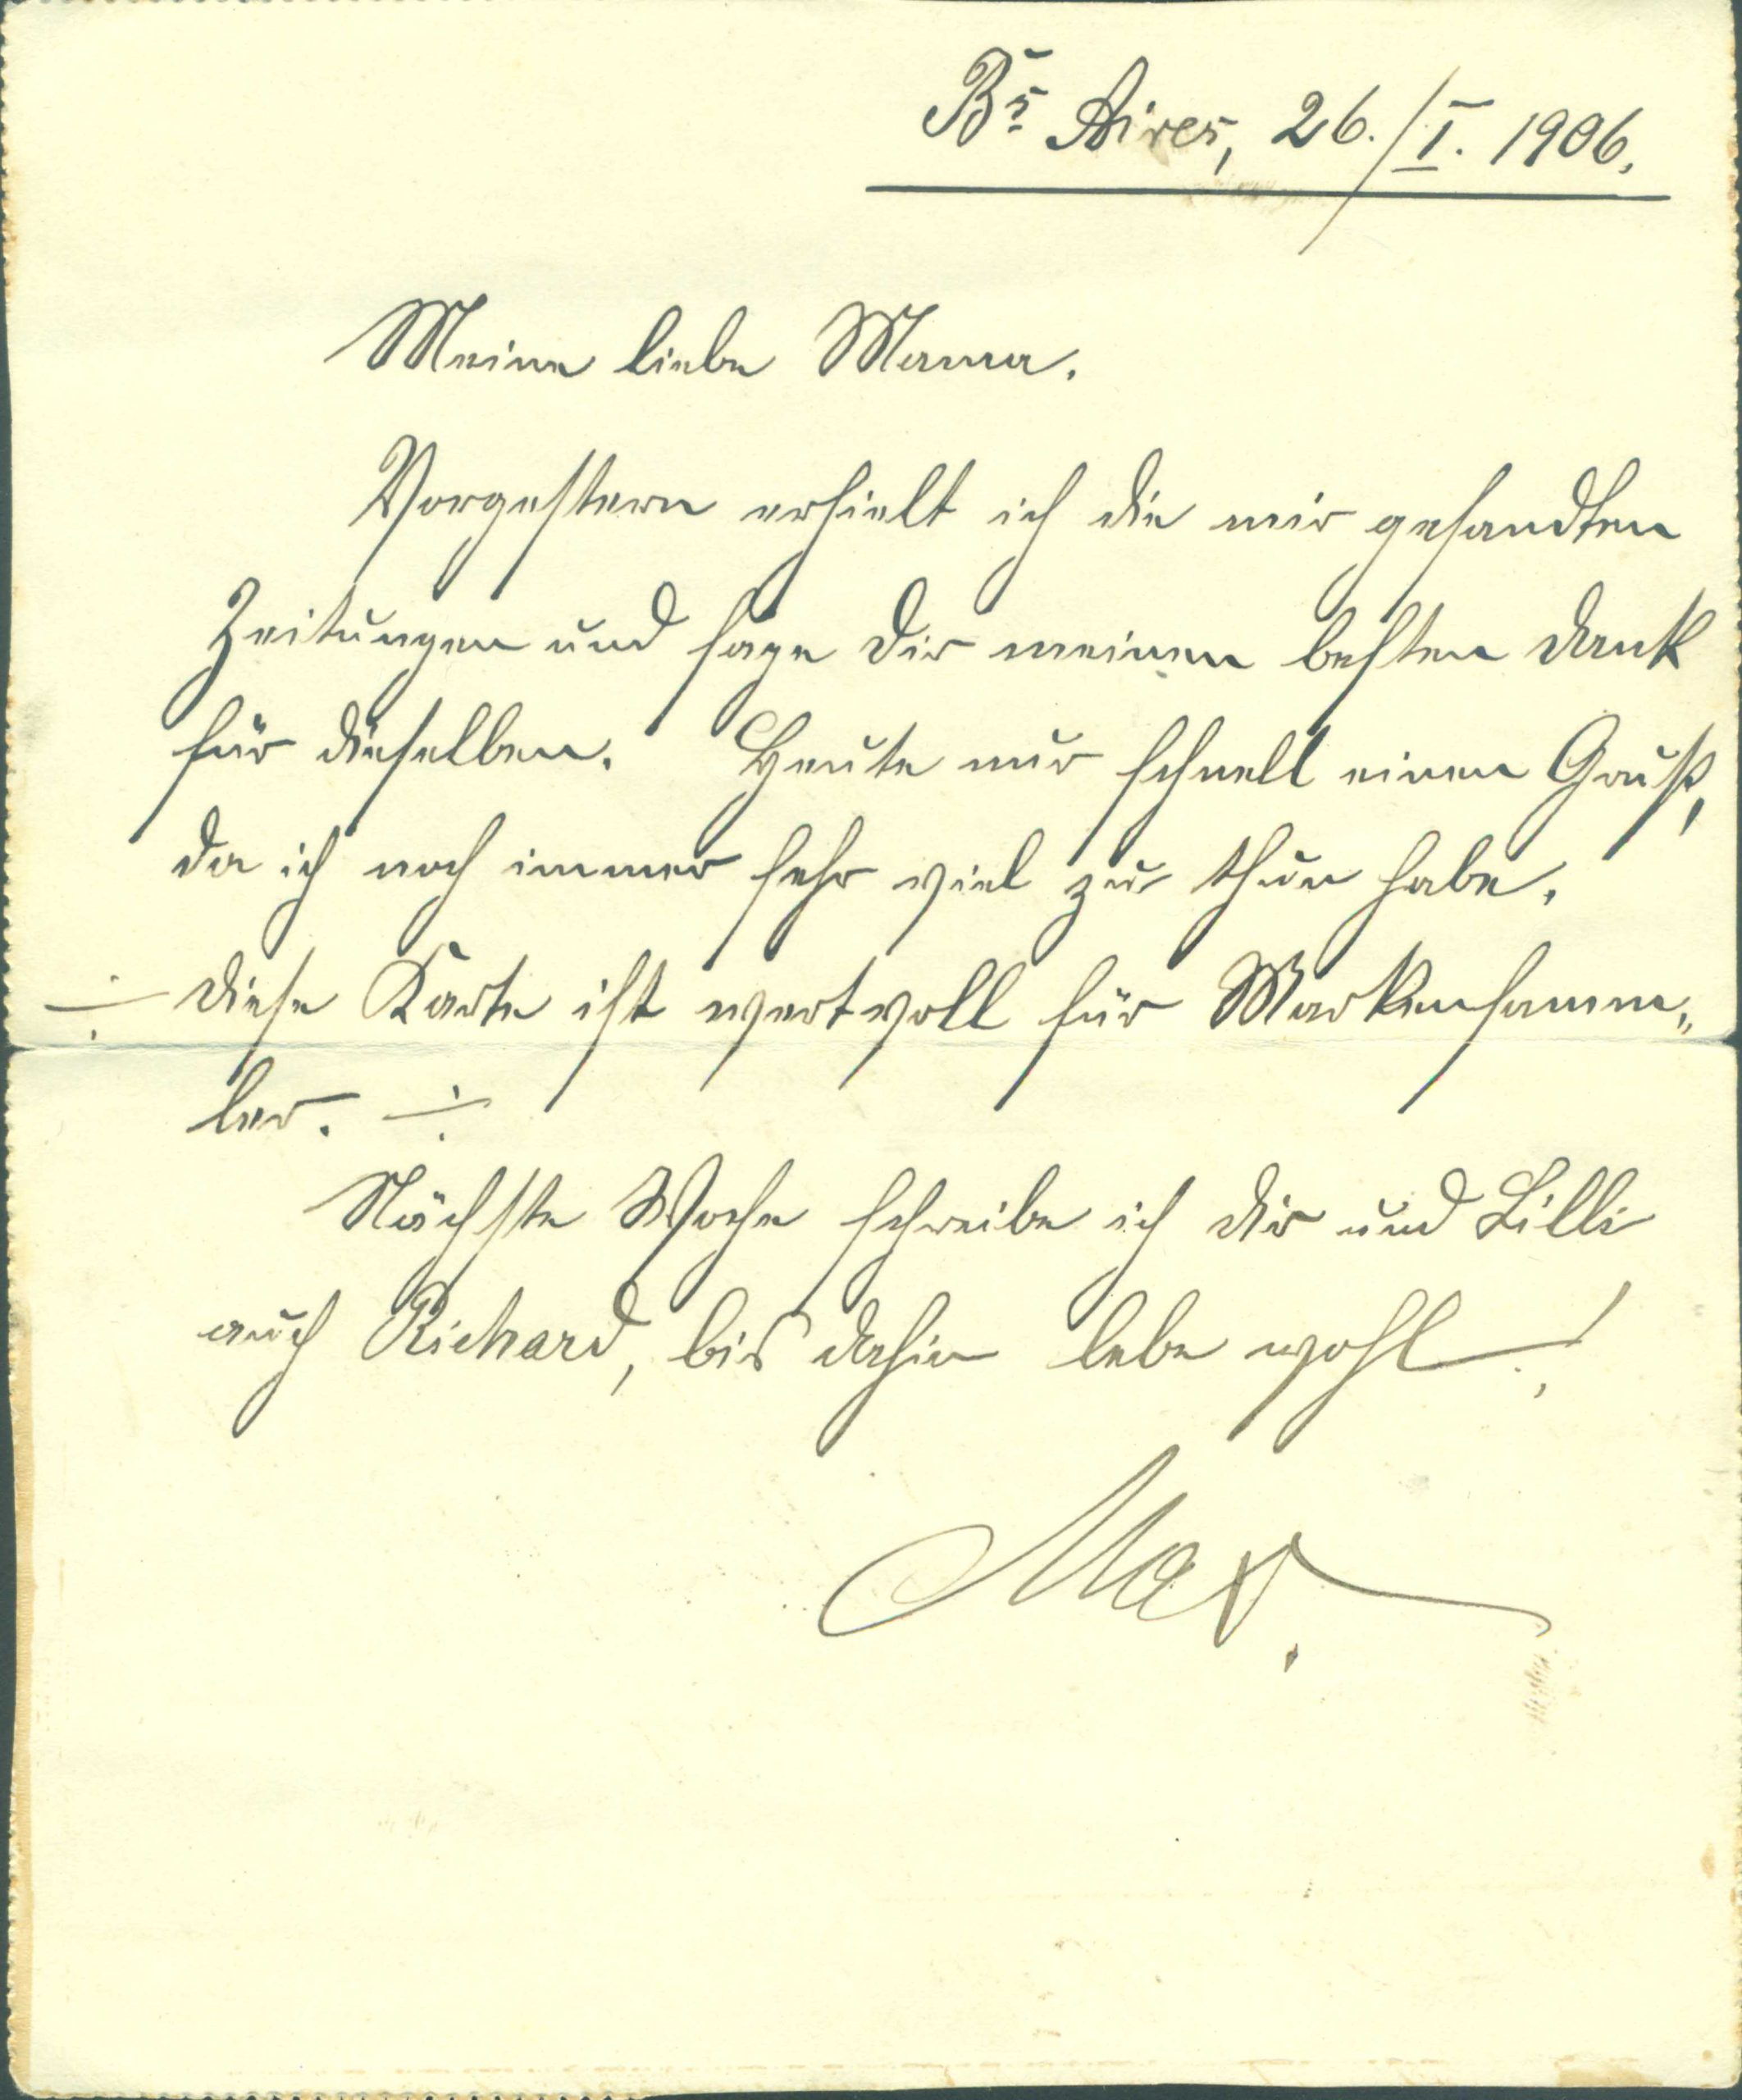 Bs Aires, 26./I. 1906.
Meine liebe Mama.
Vorgestern erhielt ich die mir gesandten
Zeitungen und sage Dir meinen besten Dank
für dieselben. Heute nur schnell einen Gruß,
da ich noch immer sehr viel zu thun habe.
÷ Diese Karte ist wertvoll für Markensamm„
ler. ÷
Nächste Woche schreibe ich Dir und Lilli
auch Richard, bis dahin lebe wohl!
Max.